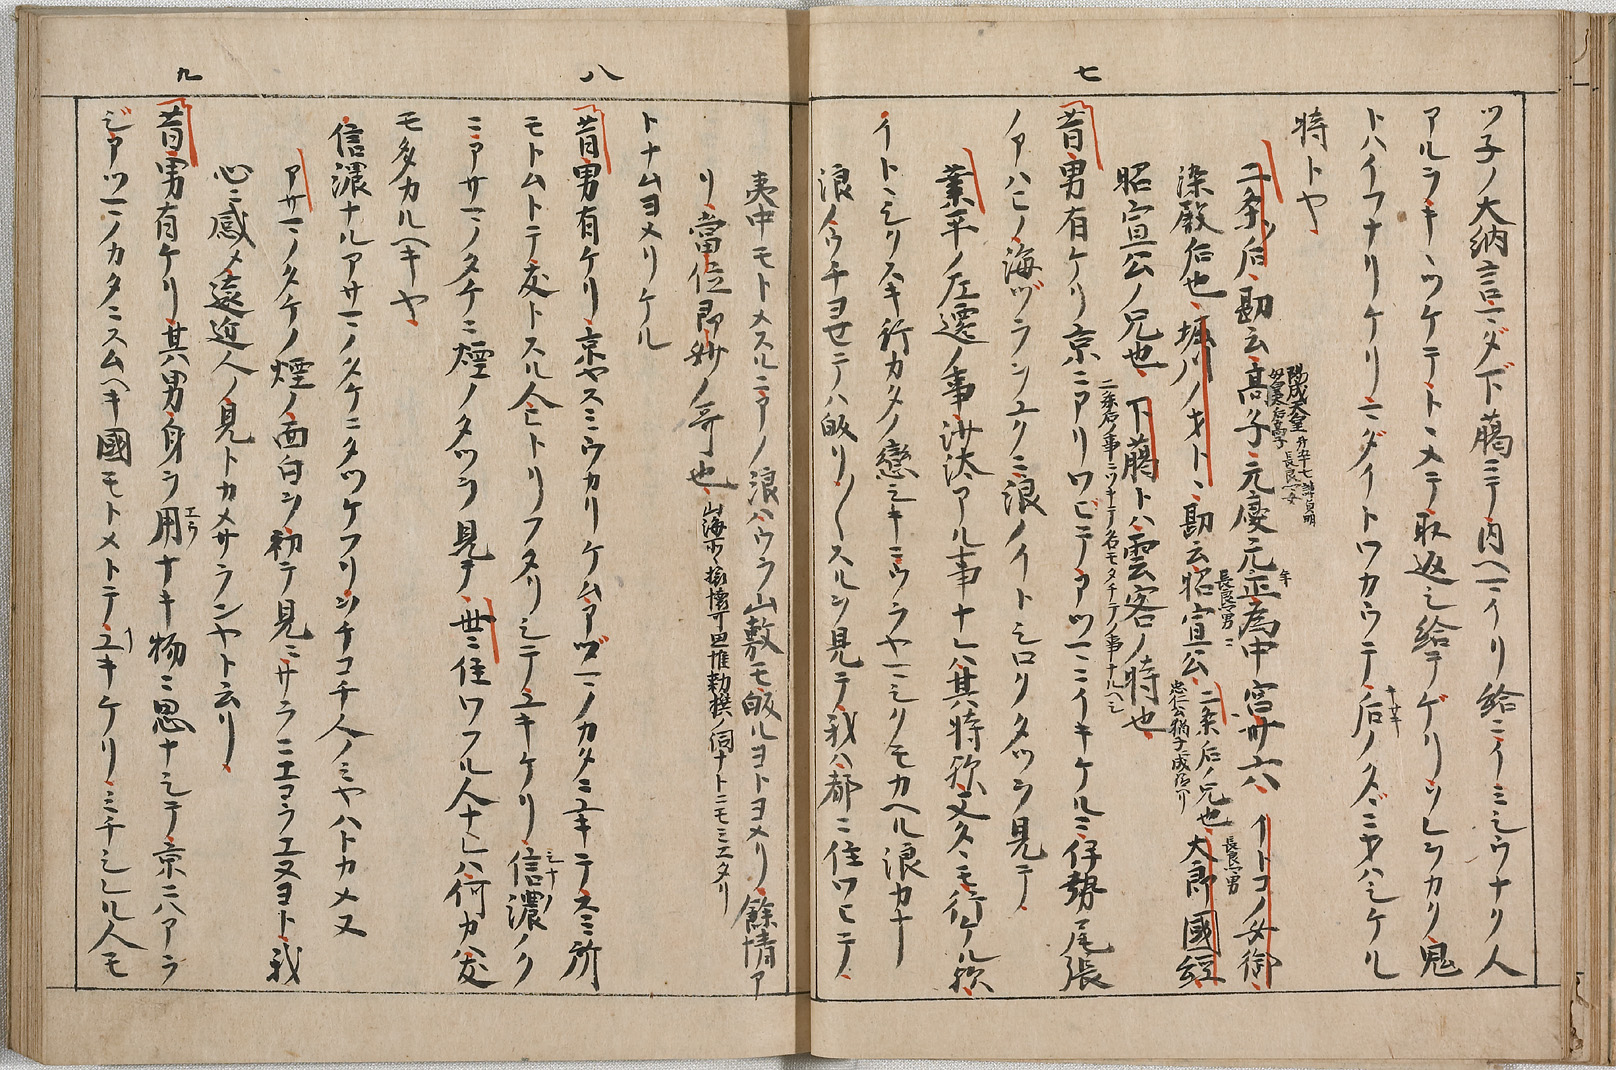 七
ツ子ノ大納言マダ下﨟ニテ内ヘマイリ給ニイミシウナク人
アルヲキヽツケテトヽメテ取返シ給テゲリソレヲカク鬼
トハイフナリケリマダイトワカウテ后ノタヾニヲハシケル
キサキ
時トヤ
二条ノ后勘云高子元慶元正為中宮卅六イトコノ女御
陽成天皇
母皇太后高子
年
染殿后也堀川ノオトヽ勘云昭宣公二条ノ后ノ兄也大郎國經
長良男
忠仁公猶子
長良男
昭宣公ノ兄也下﨟トハ雲客ノ時也
二条后ノ事ニツキテ名モタチテノ事ナルヘシ
昔男有ケリ京ニアリワビテアツマニイキケルニ伊勢尾張
ノアハヒノ海ヅラヲユクニ浪ノイトシロクタツヲ見テ
業平ノ左遷ノ事沙汰アル事ナレハ其時ノ
イトヽシクスキ行カタノ戀シキニウラヤマシクモカヘル浪カナ
浪ノウチヨセテハ皈リ〳〵スルヲ見テ我ハ都ニ住ワヒテ
夷中モトメスルニアノ浪ハウラ山敷モ皈ルヨトヨメリ餘情ア
リ當位即妙ノ哥也
八
トナムヨメリケル
昔男有ケリ京ヤスミウカリケムアヅマノカタニユキテスミ所
モトムトテ友トスル人ヒトリフタリシテユキケリ信濃ノク
シナノ
ニアサマノタケニ煙ノタツヲ見テ世ニ住ワフル人ナレハ何カ友
モ多カルヘキヤ
信濃ナルアサマノタケニタツケフリヲチコチ人ノミヤハトカメヌ
アサマノタケノ煙ノ面白ヲ初テ見ニサラニエコラエヌヨト我
心ニ感メ遠近人ノ見トカメサランヤト云リ
九
昔男有ケリ其男身ヲ用ナキ物ニ思ナシテ京ニハアラ
エウ
ジアツマノカタニスムヘキ國モトメトテユキケリミチシレル人モ